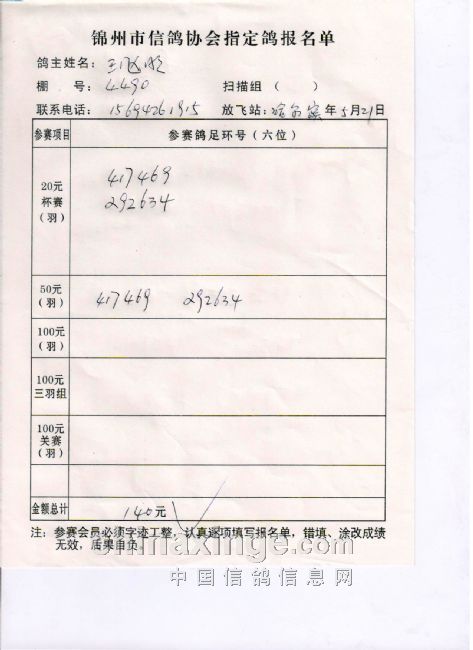 锦州市信鸽协会指定鸽报名单
鸽主姓名：王
棚 号：4490 扫描组（ ）
联系电话：15694261915 放飞站：哈尔滨 年5月21日
参赛项目 参赛鸽足环号（六位）
20元
杯赛
（羽）
417469
292634
50元
（羽）
417469 292634
100元
（羽）
100元
三羽组
100元
关赛
（羽）
金额总计 140元
注：参赛会员必须字迹工整，认真逐项填写报名单，错填、涂改成绩
无效，后果自负。
chinaxinge.com
中国信鸽信息网